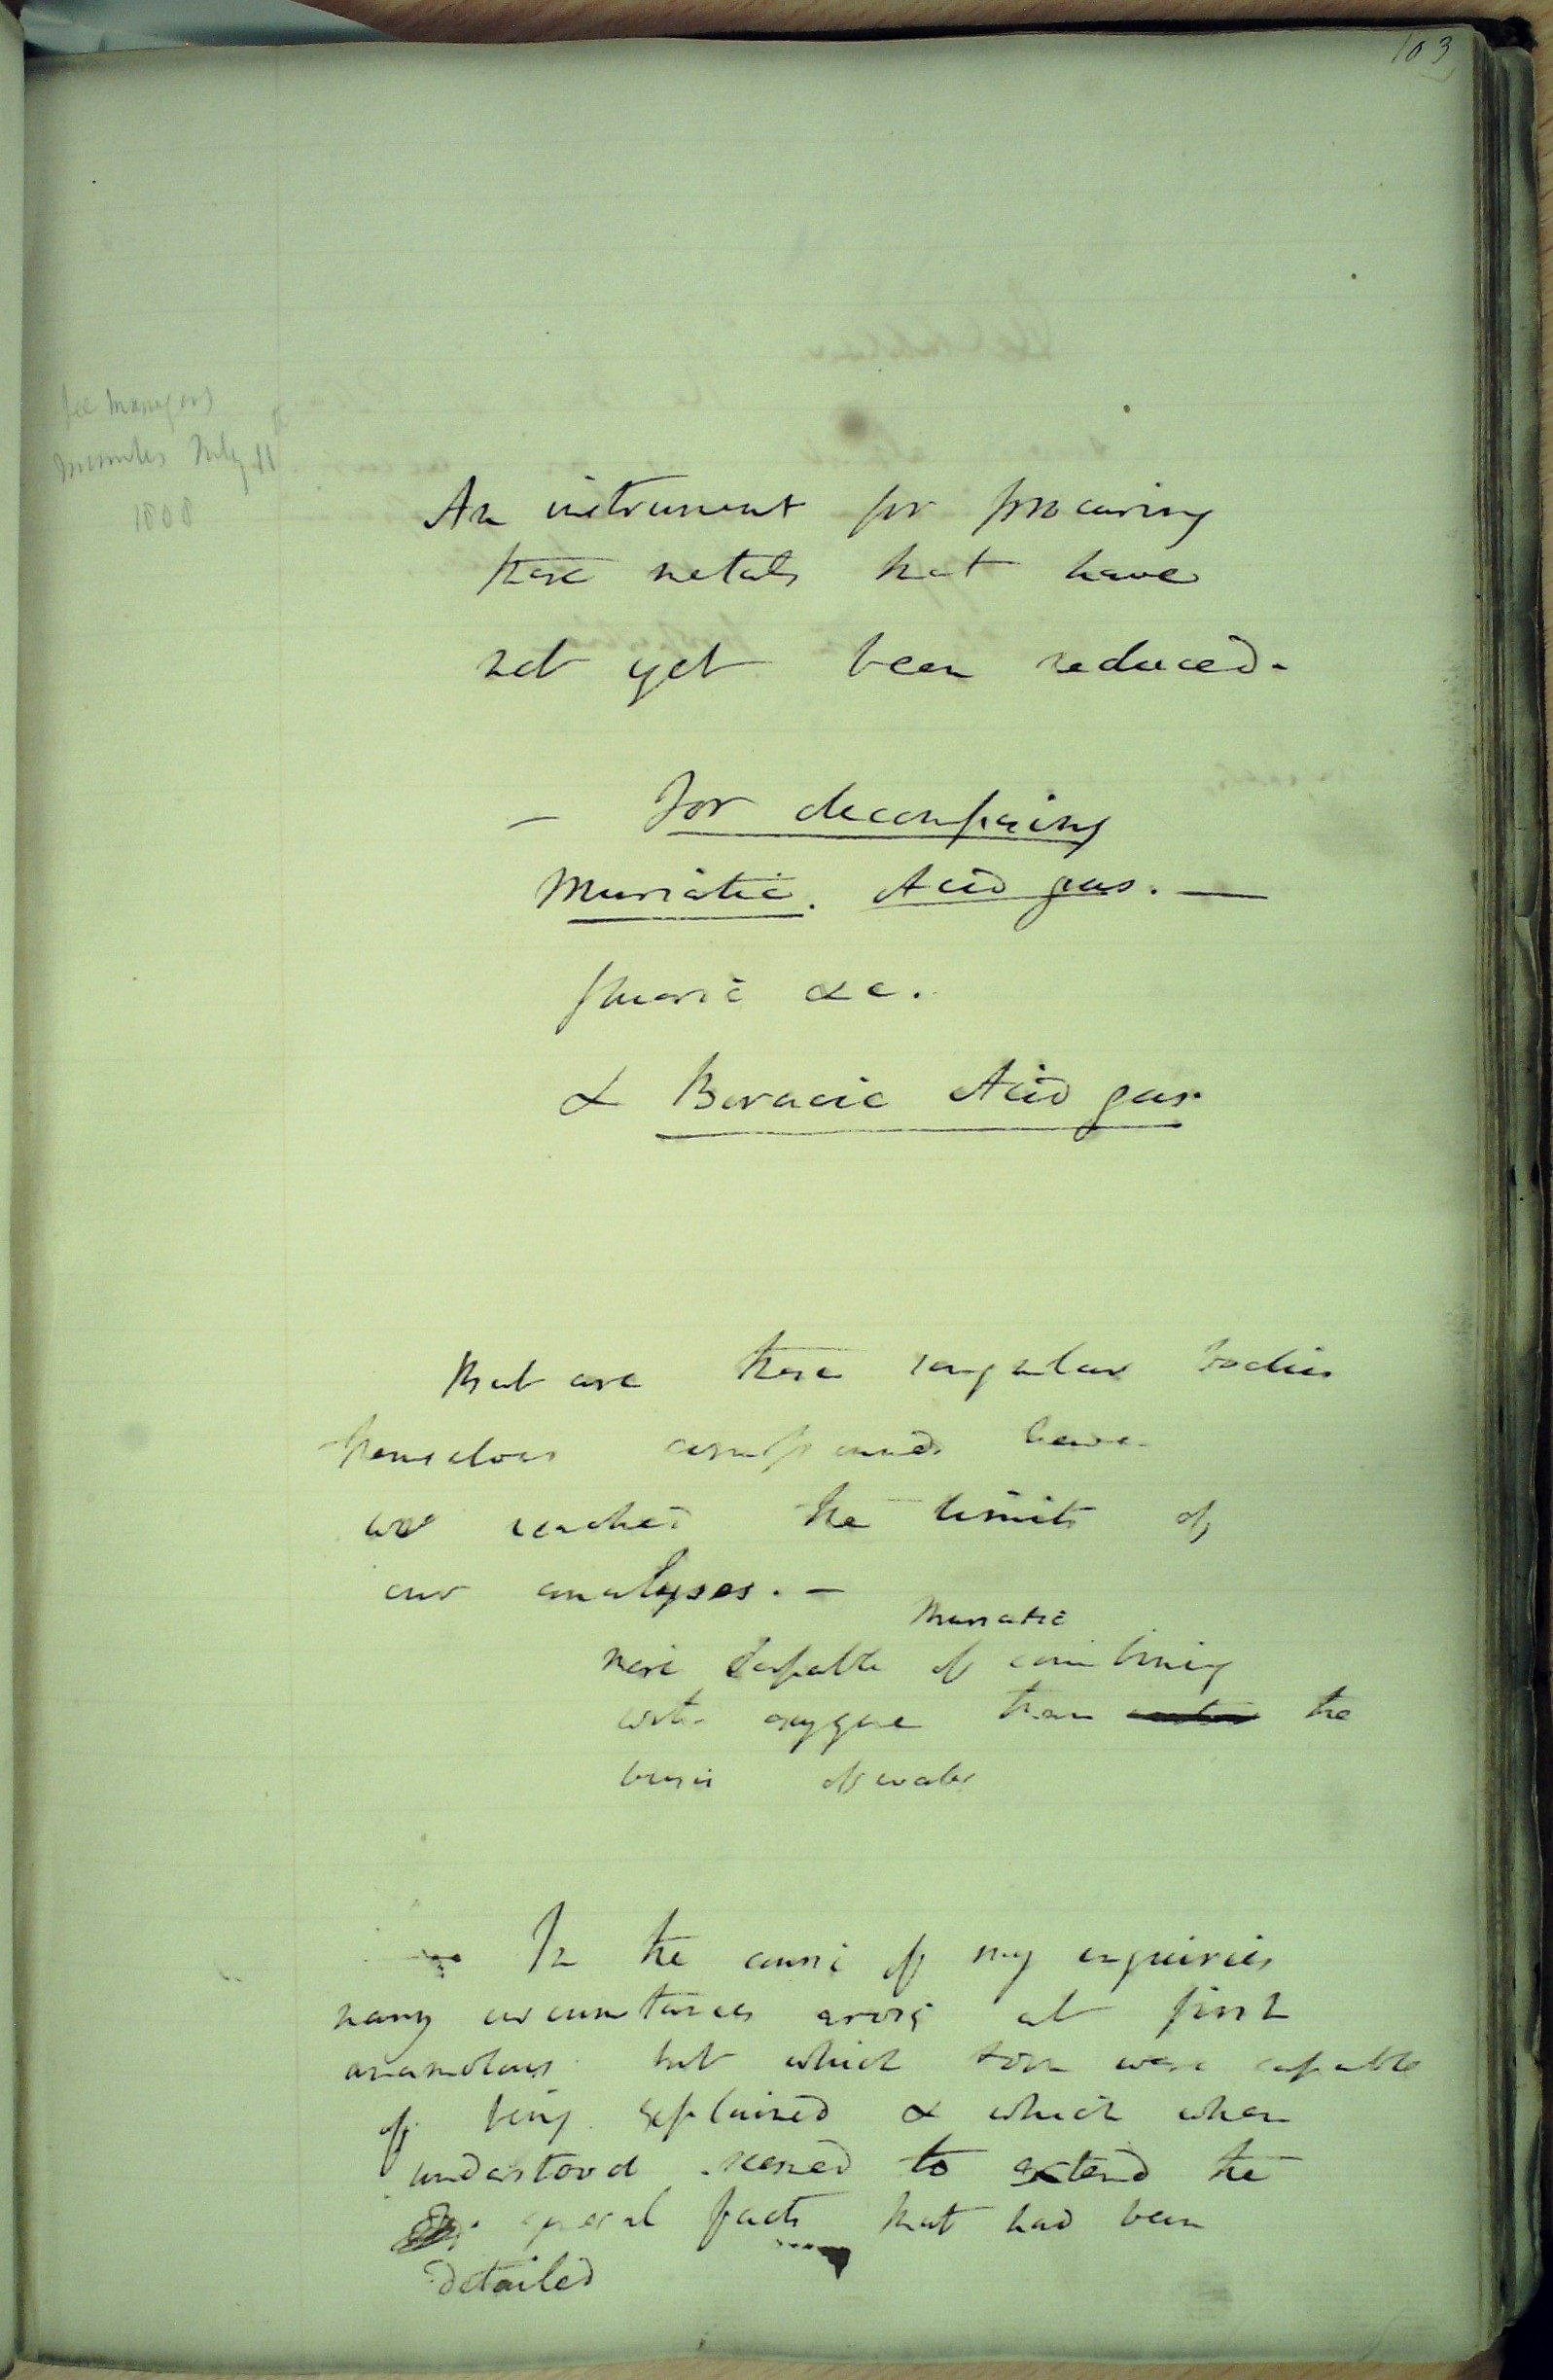 103
see Managers
Minutes July 11
1808
An instrument for procuring
those metals that have
not yet been reduced.
— For decomposing
Muriatic. Acid gas. —
fluoric &c.
& Boracic Acid gas
But are these singular bodies
themselves compounds have
we reached the limits of
our analyses. —
Muriatic
more capable of combining
with oxygene than the
basis of water
In the course of my enquiries
many circumstances arose at first
anamolous but which soon were capable
of being explained & which when
understood seemed to extend the
general facts that had been
detailed